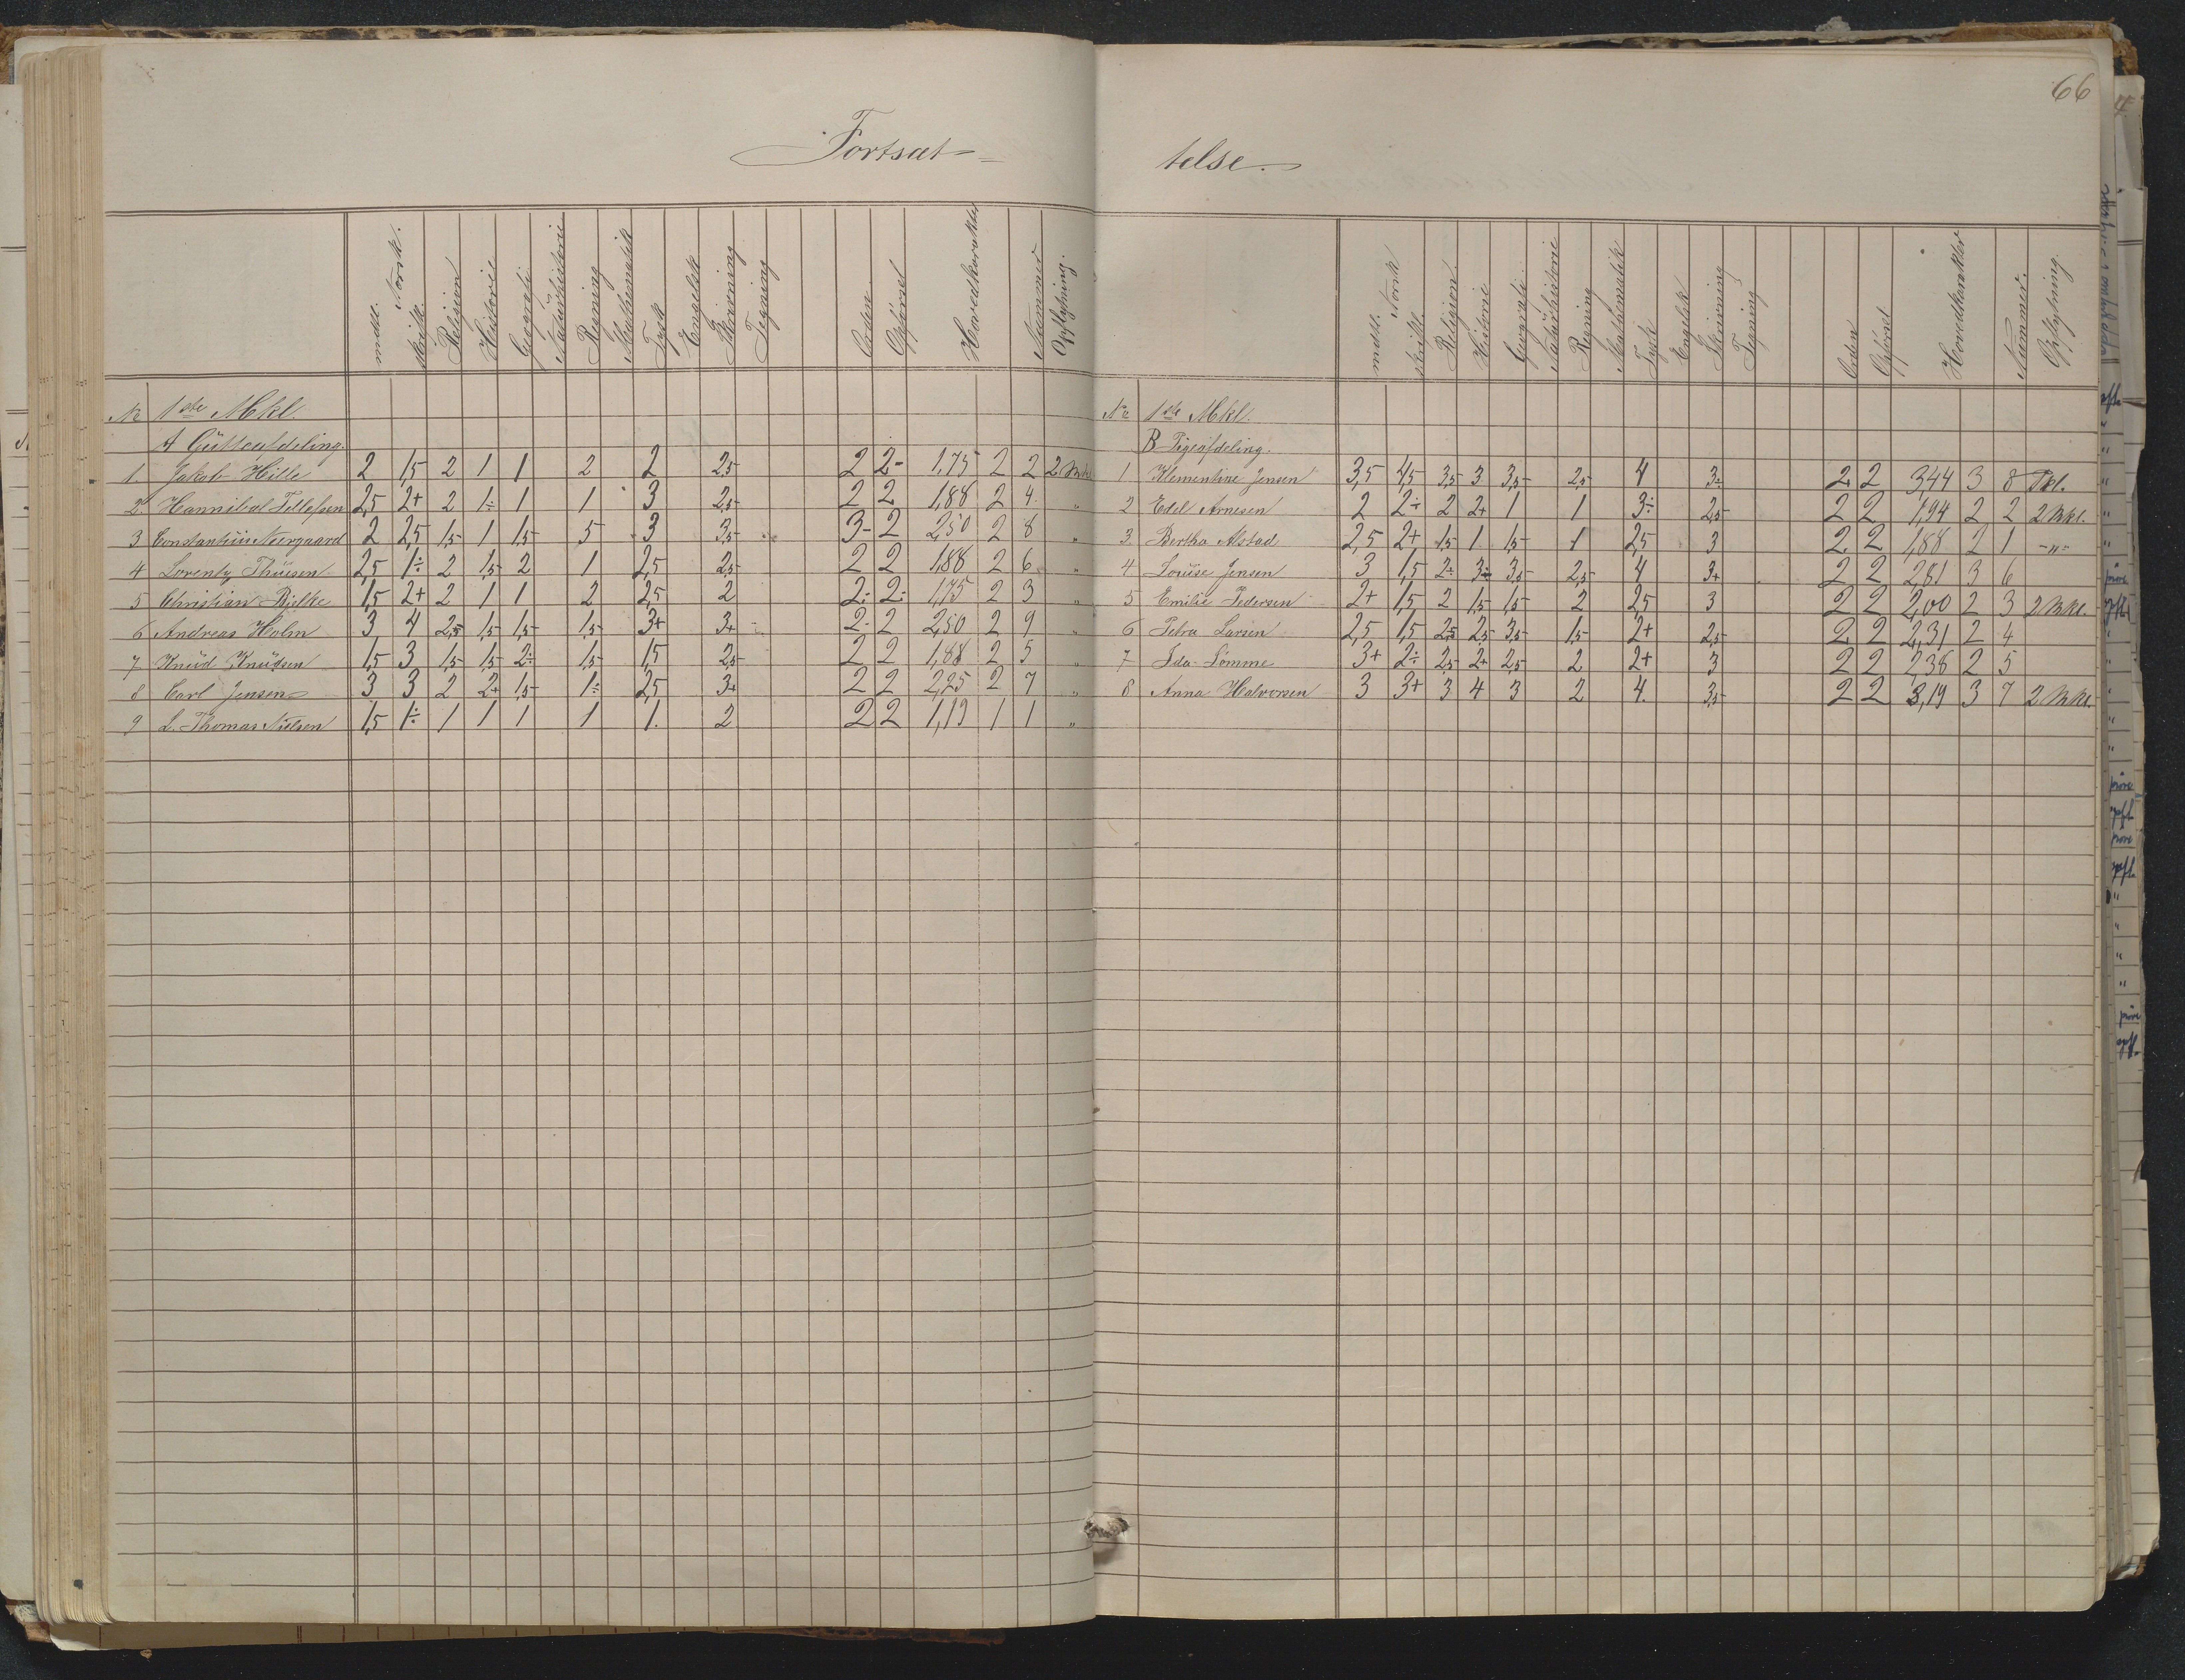 66
Fortsæt-telse.
mdtl. Norsk. skriftl. Religion Historie Geografi Naturhistorie Regning Mathematik Tysk Engelsk Skrivning Tegning Orden Opførsel Hovedkarakter Nummer Opflytning.
No 1ste Mkl
A Gutteafdeling.
1. Jakob Hille 2 1,5 2 1 1 2 2 2,5 2 2- 1,75 2 2 2 Mkl
2 Hannibal Tellefsen 2,5 2+ 2 1÷ 1 1 3 2,5 2 2 1,88 2 4 "
3 Constantin Neergaard 2 2,5 1,5 1 1,5 5 3 3,5 3- 2 2,50 2 8 "
4 Lorentz Thuesen 2,5 1÷ 2 1,5 2 1 2,5 2,5 2 2 1,88 2 6 "
5 Christian Bjelke 1,5 2+ 2 1 1 2 2,5 2 2÷ 2÷ 1,75 2 3 "
6 Andreas Holm 3 4 2,5 1,5 1,5 1,5 3+ 3+ 2- 2 2,50 2 9 "
7 Knud Knudsen 1,5 3 1,5 1,5 2÷ 1,5 1,5 2,5 2 2 1,88 2 5 "
8 Carl Jensen 3 3 2 2+ 1,5 1÷ 2,5 3+ 2 2 2,25 2 7 "
9 L. Thomas Nielsen 1,5 1÷ 1 1 1 1 1. 2 2 2 1,19 1 1 "
mdtl. Norsk skriftl. Religion Historie Geografi Naturhistorie Regning Mathematik Tysk Engelsk Skrivning Tegning Orden Opførsel Hovedkarakter Nummer. Opflytning.
No 1ste Mkl.
B Pigeafdeling.
1 Klementine Jensen 3,5 4,5 3,5 3 3,5 2,5 4 3÷ 2 2 3,44 3 8 Pkl.
2 Edel Arnesen 2 2÷ 2 2+ 1 1 3÷ 2,5 2 2 1,94 2 2 2 Mkl.
3 Bertha Alstad 2,5 2+ 1,5 1 1,5 1 2,5 3 2 2 1,88 2 1 -"-
4 Louise Jensen 3 1,5 2÷ 3÷ 3,5 2,5 4 3+ 2 2 2,81 3 6
5 Emilie Pedersen 2+ 1,5 2 1,5 1,5 2 2,5 3 2 2 2,00 2 3 2 Mkl.
6 Petra Larsen 2,5 1,5 2,5 2,5 3,5 1,5 2+ 2,5 2 2 2,31 2 4
7 Ida Lømme 3+ 2÷ 2,5 2+ 2,5 2 2+ 3 2 2 2,38 2 5
8 Anna Halvorsen 3 3+ 3 4 3 2 4. 3,5 2 2 3,19 3 7 2 Mkl.